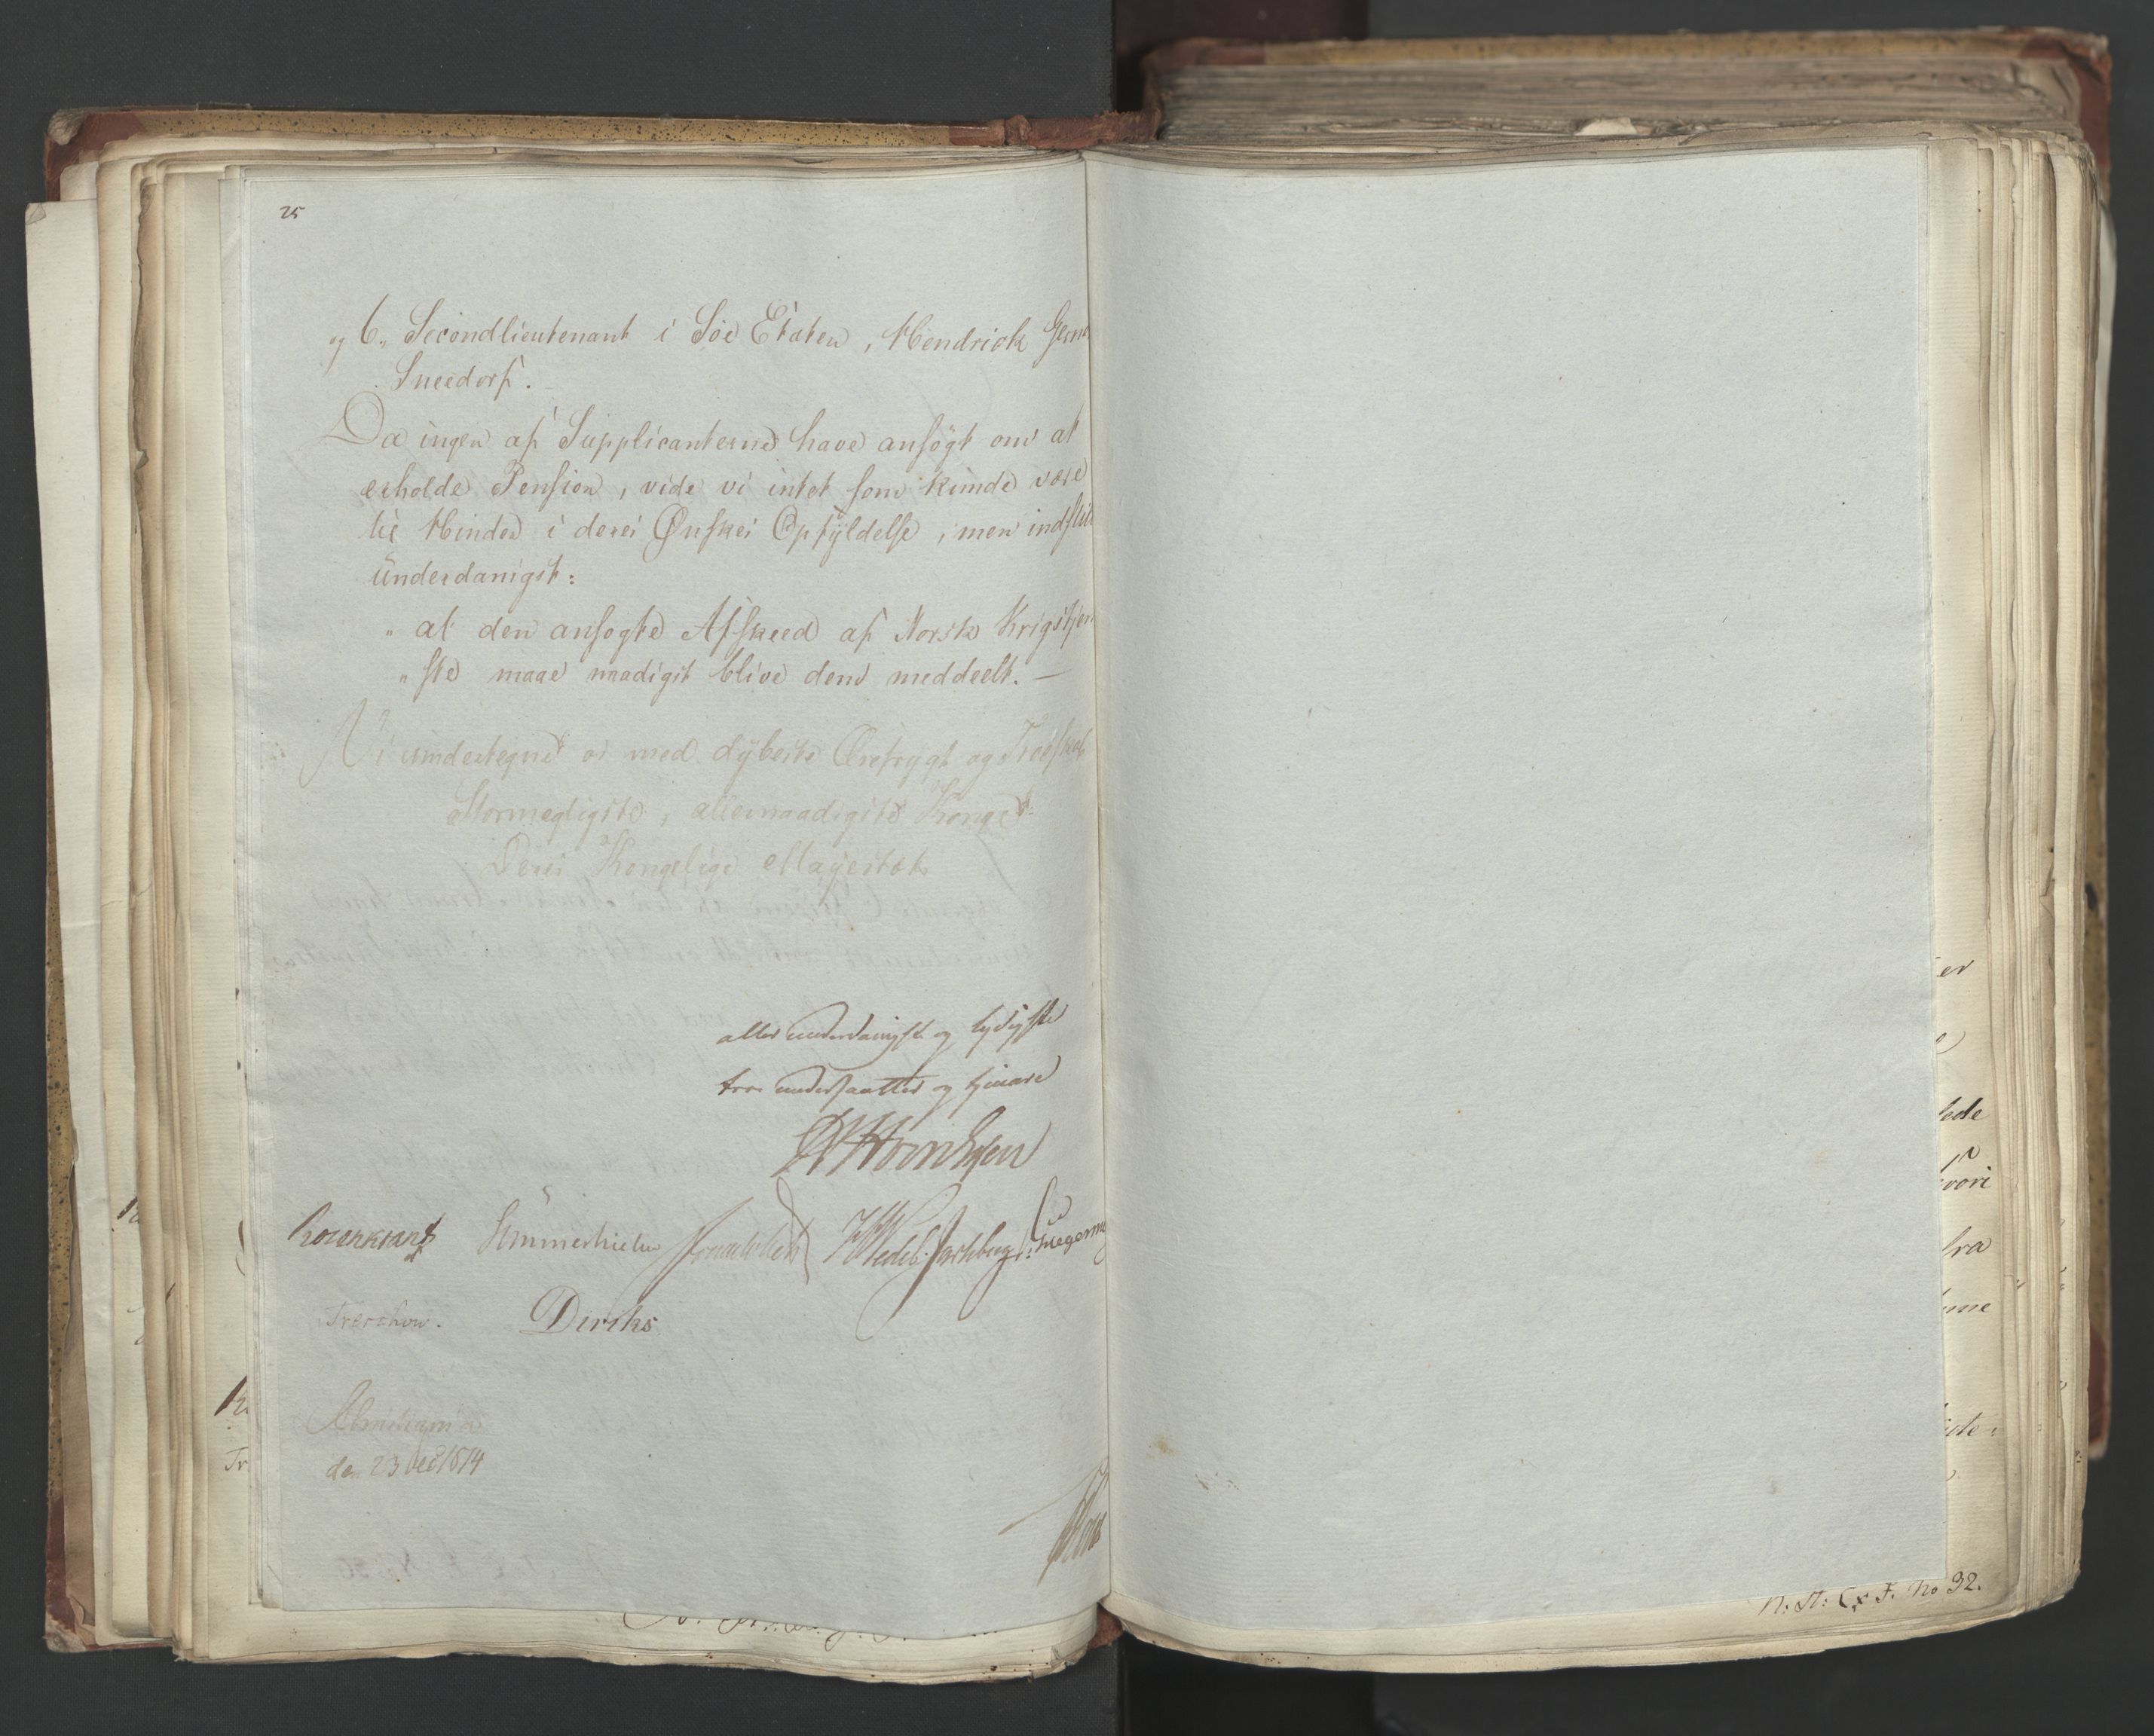 25
og 6., Secondlieutenant i Söe Etaten, Hendrick Gerne
Sneedorf.
Da ingen af Supplicanterne have ansögt om at
erholde Pension, vide vi intet som kunde være
til Hinder i deres Ønskes Opfÿldelse, men indstille
ünderdanigst:
" at den ansogte Afskeed af Norsk Krigstjen
" ste maae naadigst blive dem meddeelt. —
Vi undertegne os med dÿbeste Ærefrygt og Troskab
Stormægtigste, allernaadigste Konge!
Deres Kongelige Majestæts
aller underdanigste og lydigste
troe undersaatter og tjenere
Rosenkrantz Sommerhielm Wedel Jarlsberg Hegermann
Treschow. Diriks
Christiania
den 23 Dec 1814
er
lede
fra
N: St: Ex F. No 32.